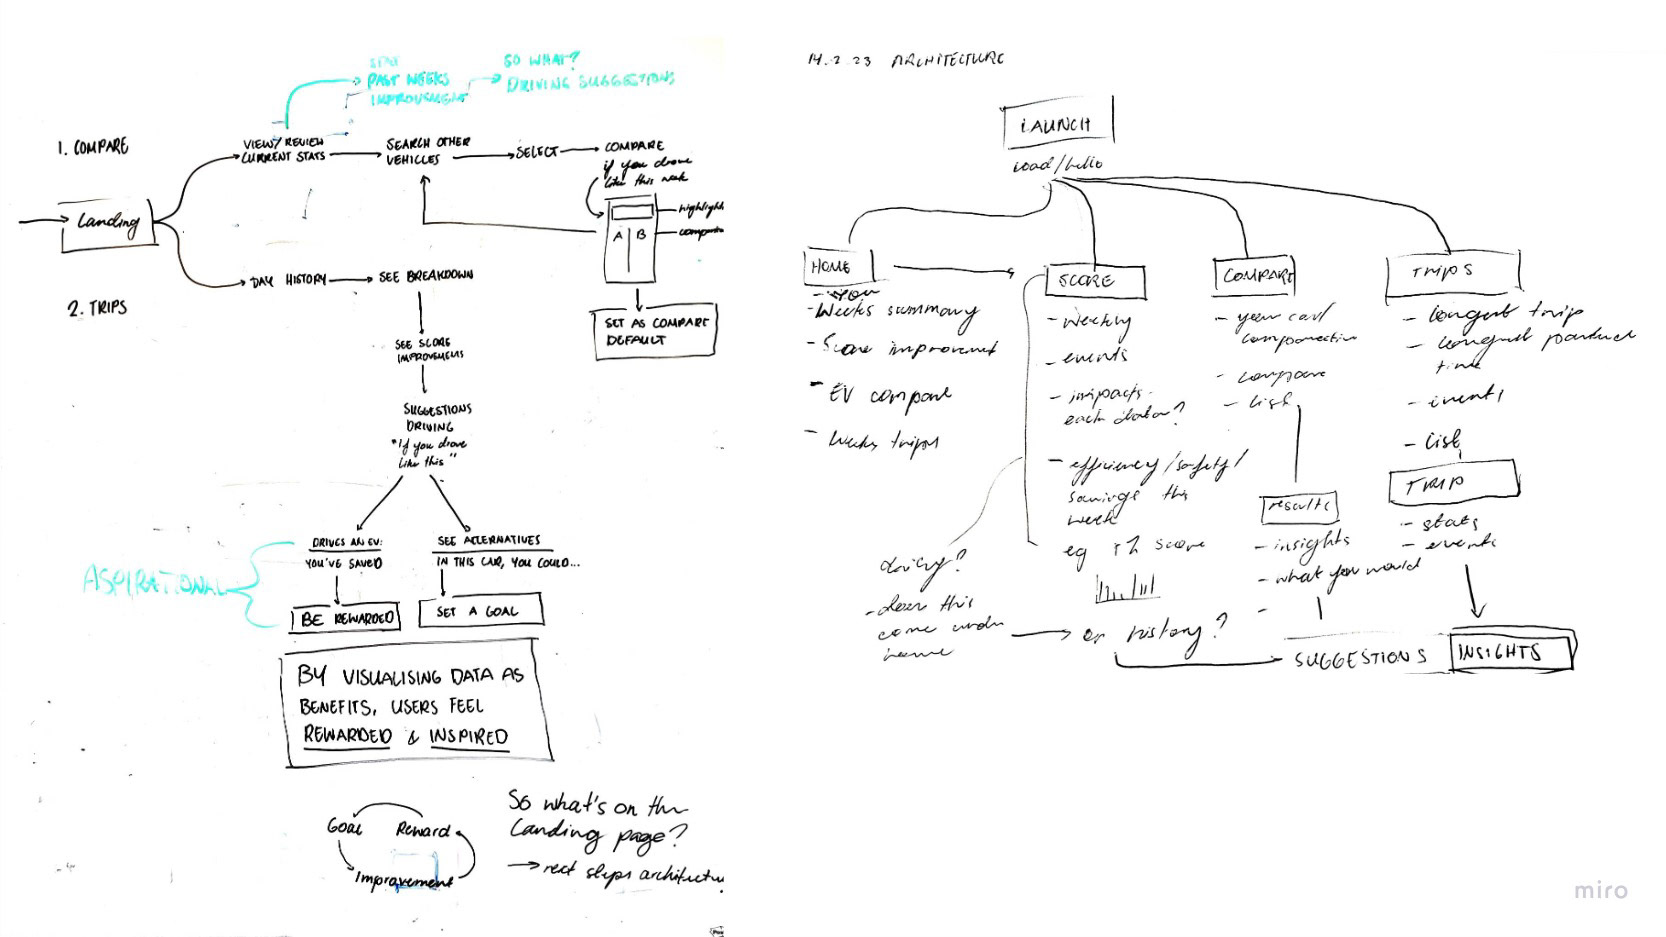 PAST WEEKS
IMPROVEMENT
SO WHAT?
DRIVING SUGGESTIONS
1. COMPARE
VIEW/REVIEW
CURRENT STATS
SEARCH OTHER
VEHICLES
SELECT
COMPARE
if you drove
like this week
Landing
highlight
A B
DAY HISTORY
SEE BREAKDOWN
2. TRIPS
SET AS COMPARE
DEFAULT
SEE SCORE
IMPROVEMENTS
SUGGESTIONS
DRIVING
"If you drove
like this"
ASPIRATIONAL
DRIVES AN EV:
YOU'VE SAVED
BE REWARDED
SEE ALTERNATIVES
IN THIS CAR, YOU COULD...
SET A GOAL
BY VISUALISING DATA AS
BENEFITS, USERS FEEL
REWARDED & INSPIRED
Goal
Reward
Improvement
So what's on the
Landing page?
→ next steps
14.2.23 ARCHITECTURE
LAUNCH
load/hello
HOME
- Weeks summary
- Score improvement
- EV compare
- Weeks trips
SCORE
- weekly
- events
- impacts -
each data?
- efficiency/safety/
savings this
week
eg score
or history?
- does this
come under
home
COMPARE
- your car/
- compare
- list
results
- insights
- what you would
-
TRIPS
- longest trip
- longest
time
- events
- list
TRIP
- stats
- events
SUGGESTIONS
INSIGHTS
miro